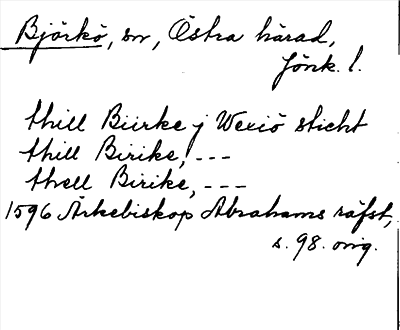 Björkö, sn, Östra härad,
Jönk. l.
thill Biirke j Wexiö sticht
thill Birike, ---
threll Birike, ---
1596 Ärkebiskop Abrahams räfst,
s. 98. orig.